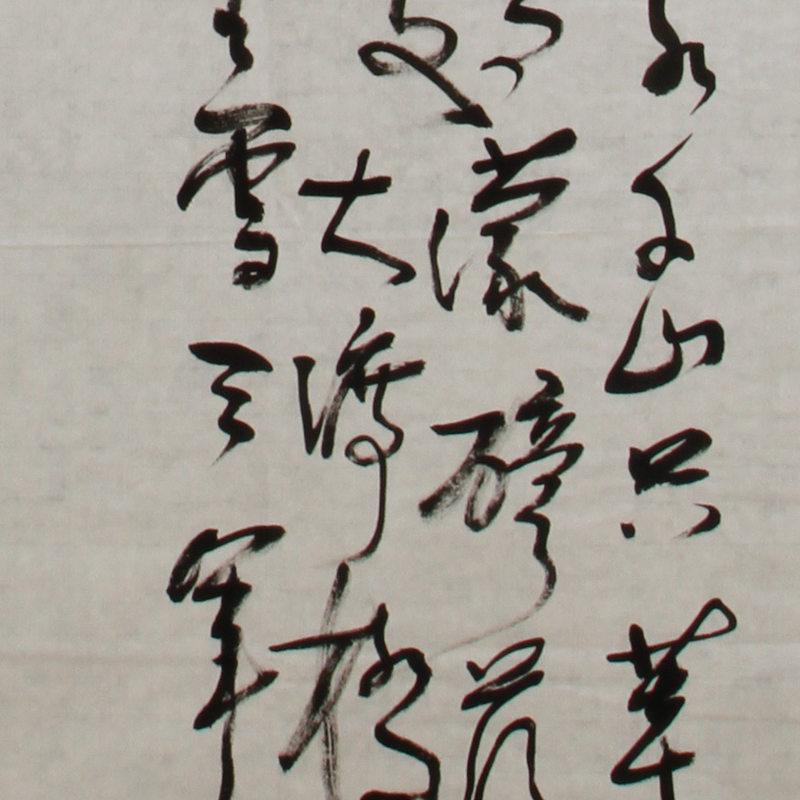 水千山只等
乌蒙磅礴
暖大渡桥
里雪三军